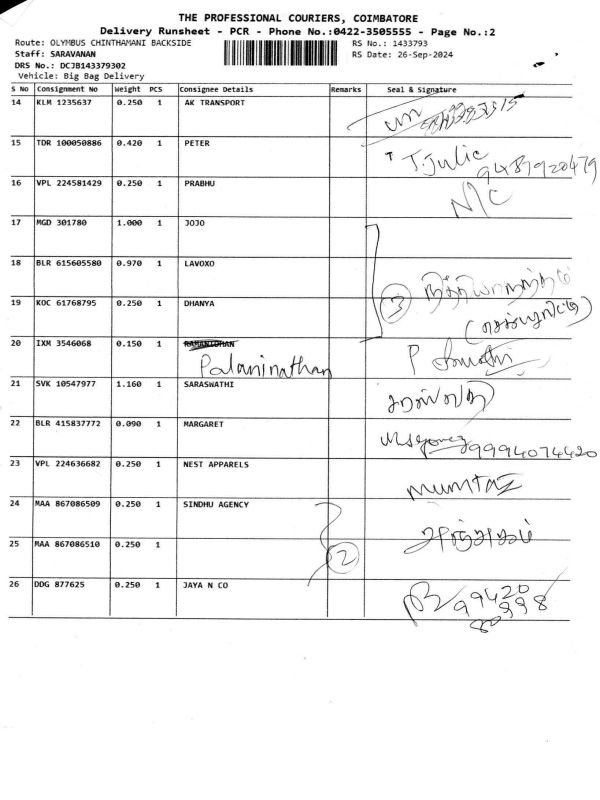 THE PROFESSIONAL COURIERS, COIMBATORE
Delivery Runsheet - PCR - Phone No.:0422-3505555 - Page No.:2
Route: OLYMBUS CHINTHAMANI BACKSIDE RS No.: 1433793
Staff: SARAVANAN RS Date: 26-Sep-2024
DRS No.: DCJB143379302
Vehicle: Big Bag Delivery
S No Consignment No Weight PCS Consignee Details Remarks Seal & Signature
14 KLM 1235637 0.250 1 AK TRANSPORT
15 TDR 100050886 0.420 1 PETER T. Julie
9487920479
16 VPL 224581429 0.250 1 PRABHU N/C
17 MGD 301780 1.000 1 JOJO
18 BLR 615605580 0.970 1 LAVOXO
19 KOC 61768795 0.250 1 DHANYA 3
20 IXM 3546068 0.150 1
Palaninathan P
21 SVK 10547977 1.160 1 SARASWATHI
22 BLR 415837772 0.090 1 MARGARET 9994074420
23 VPL 224636682 0.250 1 NEST APPARELS Mumtaz
24 MAA 867086509 0.250 1 SINDHU AGENCY
25 MAA 867086510 0.250 1 2
26 DDG 877625 0.250 1 JAYA N CO 99420